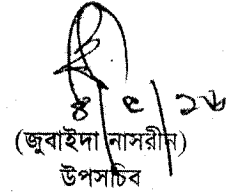 ৪|৫|১৬
(জুবাইদা নাসরীন)
উপসচিব